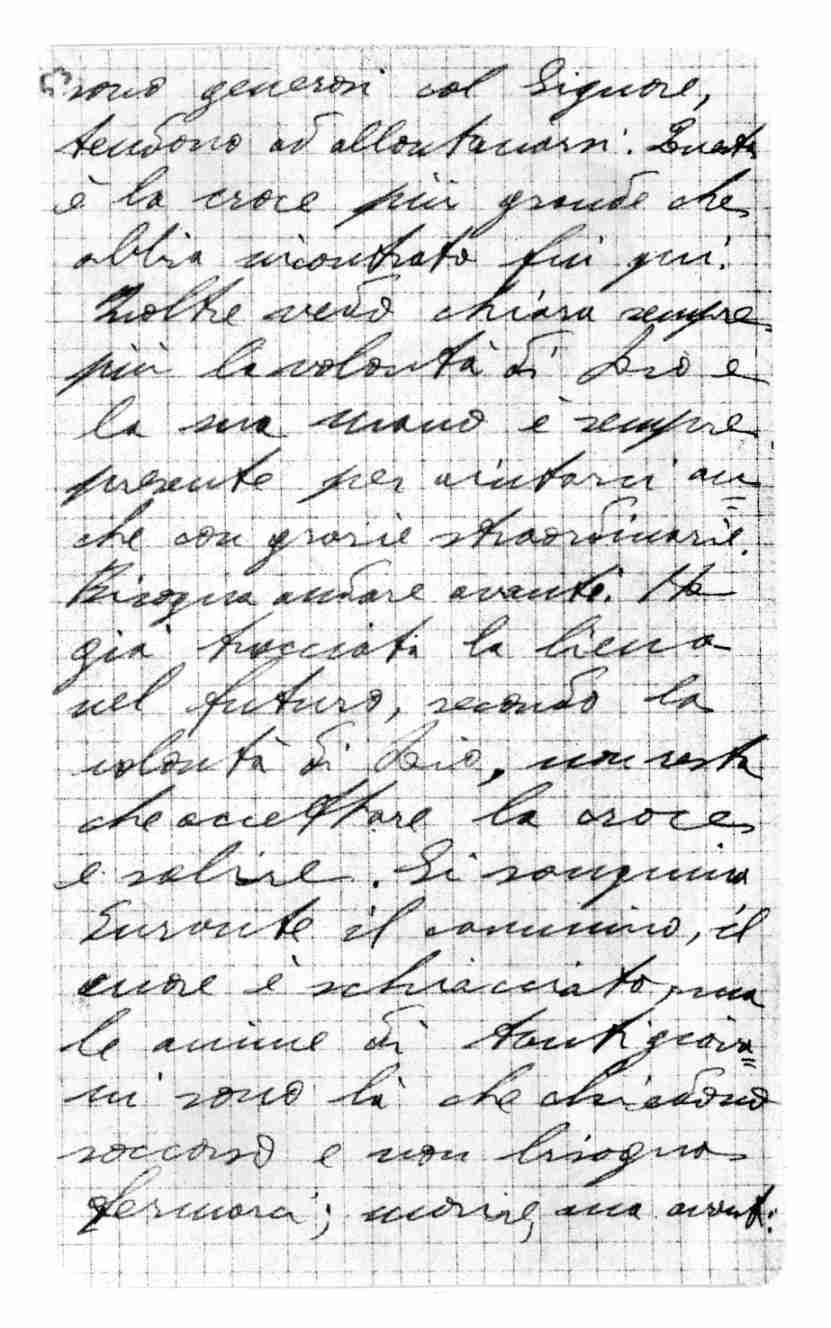 sono generosi col Signore,
tendono ad allontanarsi. Questa
è la croce più grande che
abbia incontrato fin qui.
Inoltre vedo chiara sempre
più la volontà di Dio e
la sua mano è sempre
presente per aiutarci an=
che con grazie straordinarie.
Bisogna andare avanti. Ha
già tracciata la linea
nel futuro, secondo la
volontà di Dio, non resta
che accettare la croce
e salire. Si sanguina
durante il cammino, il
cuore è schiacciato, ma
le anime di tanti giova=
ni sono là che chiedono
soccorso e non bisogna
fermarci; morire, ma avanti